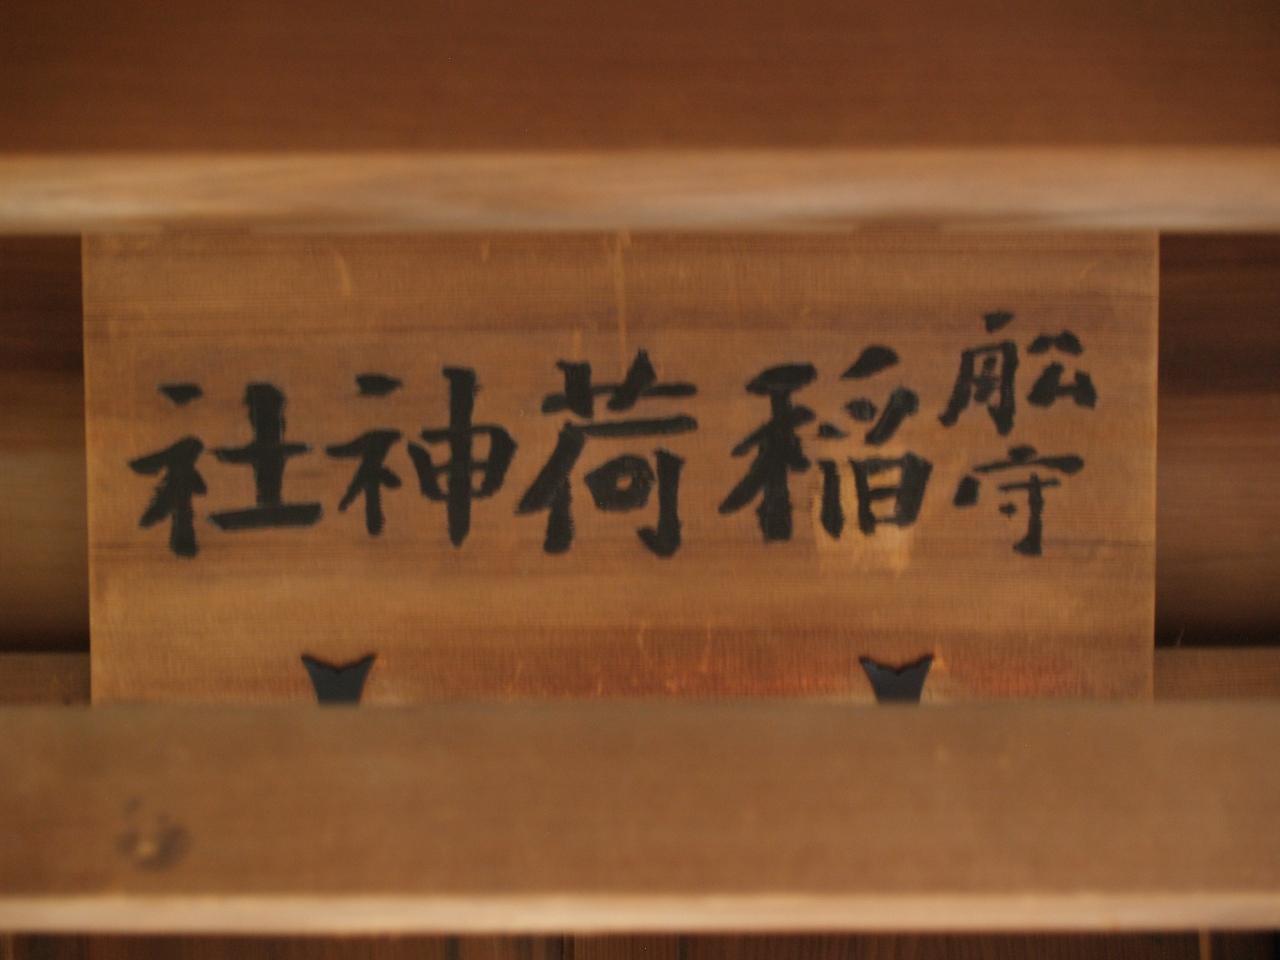 舩守
稲荷神社